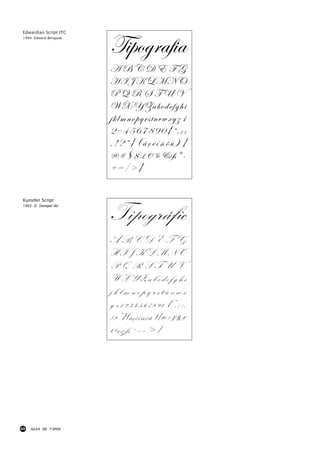 Edwardian Script ITC
1994: Edward Benguiat
Tipografia
A B C D E F G
H I J K L M N O
P Q R S T U V
W X Y Z a b c d e f g h i
j k l m n o p q r s t u v w x y z 1
2 3 4 5 6 7 8 9 0
Kunstler Script
1902: D. Stempel AG
Tipográfic
A B C D E F G
H I J K L M N O
P Q R S T U V
W X Y Z a b c d e f g h i
j k l m n o p q r s t u v w x
y z 1 2 3 4 5 6 7 8 9 0
60 GUÍA DE TIPOS